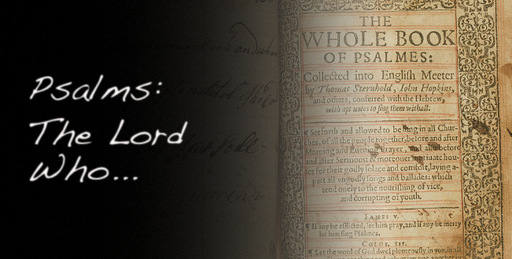 Psalms:
The Lord
Who...
THE
WHOLE BOOK
OF PSALMES:
Collected into English Meeter
by Thomas Sternhold, Iohn Hopkins,
and others, conferred with the Hebrew,
with apt notes to sing them withall.
¶ Set forth and allowed to be sung in all Chur-
ches, of all the people together, before and after
Morning and Evening Prayer, and also before
and after Sermons & moreover in private hou-
ses for their godly solace and comfort, laying a-
part all ungodly songs and ballades: which
tend onely to the nourishing of vice,
and corrupting of youth.
IAMES V.
¶ If any be afflicted, let him pray, and if any be merry
let him sing Psalmes.
COLOS. III.
¶ Let the word of God dwel plenteously in you, in all